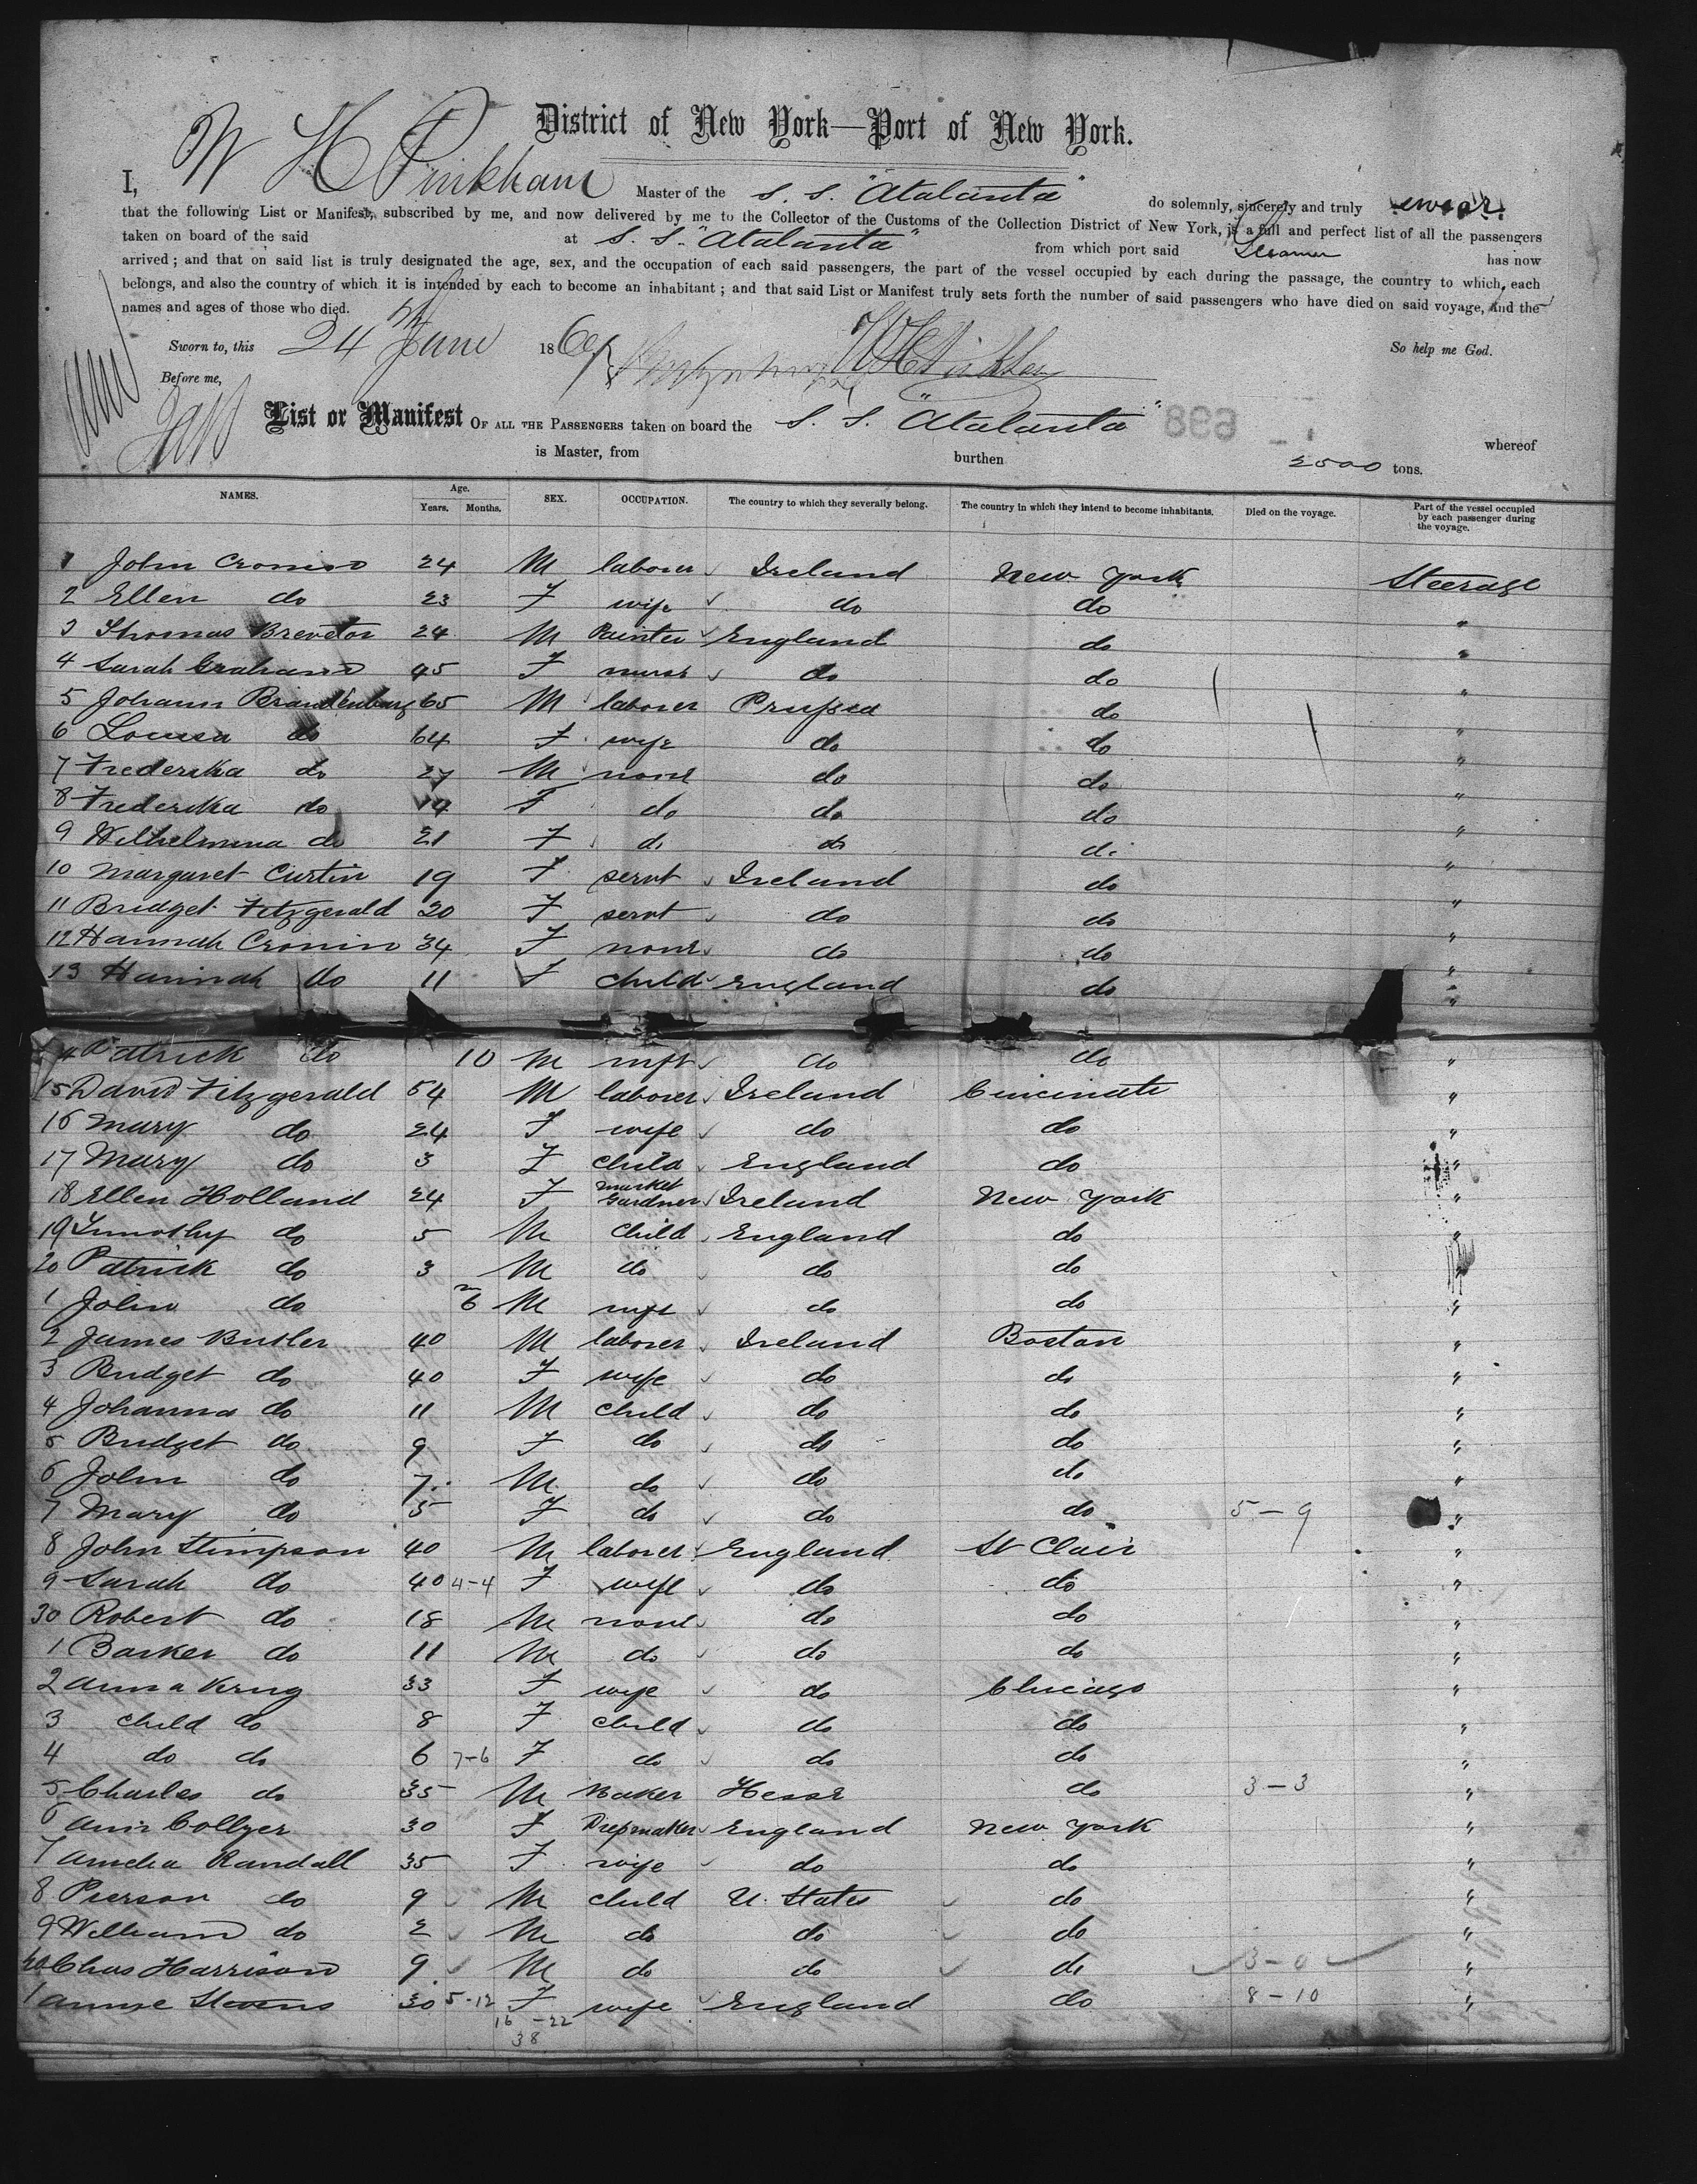 District of New York—Port of New York.
I, W H Pinkham Master of the S. S. "Atalanta" do solemnly, sincerely and truly swear
that the following List or Manifest, subscribed by me, and now delivered by me to the Collector of the Customs of the Collection District of New York, is a full and perfect list of all the passengers
taken on board of the said at S. S. "Atalanta" from which port said Steamer has now
arrived; and that on said list is truly designated the age, sex, and the occupation of each said passengers, the part of the vessel occupied by each during the passage, the country to which each
belongs, and also the country of which it is intended by each to become an inhabitant; and that said List or Manifest truly sets forth the number of said passengers who have died on said voyage, and the
names and ages of those who died.
Sworn to, this 24th June 1869 WH Pinkham So help me God.
Before me,
List or Manifest OF ALL THE PASSENGERS taken on board the S. S. "Atalanta" whereof
is Master, from burthen 2500 tons.
NAMES. Age. Years. Months. SEX. OCCUPATION. The country to which they severally belong. The country in which they intend to become inhabitants. Died on the voyage. Part of the vessel occupied by each passenger during the voyage.
1 John Cronin 24 M laborer Ireland New York Steerage
2 Ellen do 23 F wife do do "
3 Thomas Brereton 24 M Painter England do "
4 Sarah Graham 45 F nurse do do "
5 Johann Brandenburg 65 M laborer Prussia do "
6 Louisa do 64 F wife do do "
7 Frederika do 27 M none do do "
8 Frederika do 14 F do do do "
9 Wilhelmina do 21 F do do do "
10 Margaret Curtin 19 F servt Ireland do "
11 Bridget Fitzgerald 20 F servt do do "
12 Hannah Cronin 34 F none do do "
13 Hannah do 11 F child England do "
14 Patrick do 10 M inft do do "
15 David Fitzgerald 54 M laborer Ireland Cincinati "
16 Mary do 24 F wife do do "
17 Mary do 3 F child England do "
18 Ellen Holland 24 F market Gardner Ireland New York "
19 Timothy do 5 M Child England do "
20 Patrick do 3 M do do do "
1 John do 6 M inft do do "
2 James Butler 40 M laborer Ireland Boston "
3 Bridget do 40 F wife do do "
4 Johanna do 11 M child do do "
5 Bridget do 9 F do do do "
6 John do 7 M do do do "
7 Mary do 5 F do do do 5-9 "
8 John Stimpson 40 M laborer England St Clair "
9 Sarah do 40 4-4 F wife do do "
30 Robert do 18 M none do do "
1 Barker do 11 M do do do "
2 Anna Krug 33 F wife do Chicago "
3 child do 8 F child do do "
4 do do 6 7-6 F do do do "
5 Charles do 35 M Baker Hesse do 3-3 "
6 Ann Collyer 30 F Dressmaker England New York "
7 Amelia Randall 35 F wife do do "
8 Pierson do 9 M child U. States do "
9 William do 2 M do do do "
40 Chas Harrison 9 M do do do 3-0 "
1 Annie Stevens 30 5-12 F wife England do 8-10 "
16-22
38